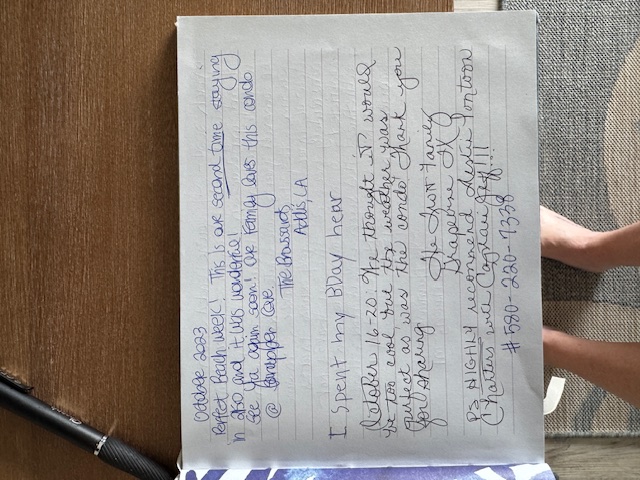 October 2023
Perfect Beach week! This is our second time staying
in Dso and it was wonderful!
See Ya again soon! Our Family loves this condo
@ Grove.
The Broussards
Addis, LA
I spent my BDay hear
October 16-20. We thought it would
be too cool but the weather was
perfect as was the condo. Thank you
for sharing
The Family
Grapevine TX
PS HIGHLY recommend Destin Pontoon
Charters with Captain Jeff!!!
#580-220-7338